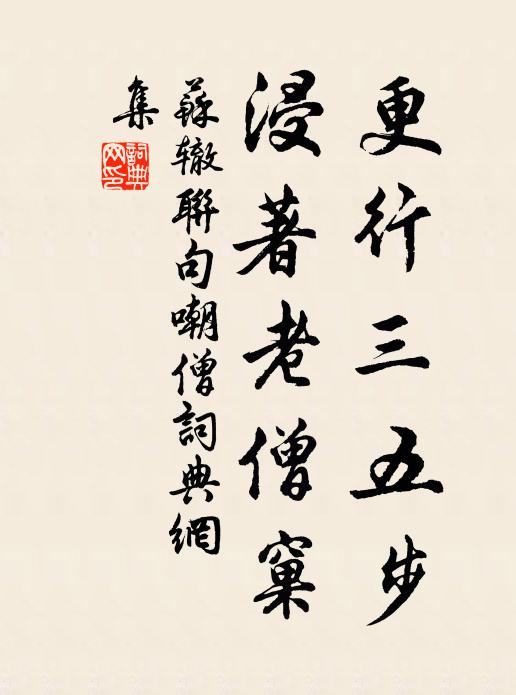 更行三五步
浸著老僧窠
蘇轍聯句嘲僧詞典網
集
詞典網印